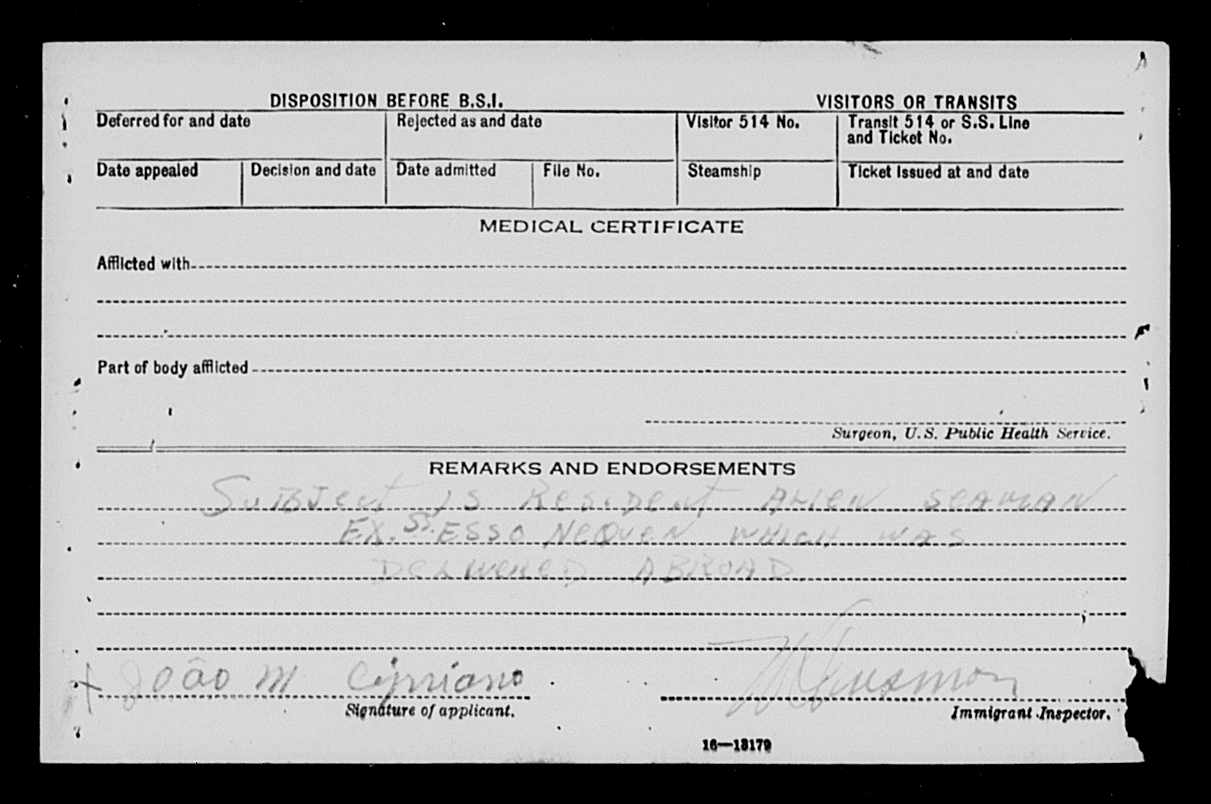 DISPOSITION BEFORE B.S.I.
VISITORS OR TRANSITS
Deferred for and date
Rejected as and date
Visitor 514 No.
Transit 514 or S.S. Line
and Ticket No.
Date appealed
Decision and date
Date admitted
File No.
Steamship
Ticket issued at and date
MEDICAL CERTIFICATE
Afflicted with
Part of body afflicted
Surgeon, U.S. Public Health Service.
REMARKS AND ENDORSEMENTS
SUBJECT IS RESIDENT ALIEN SEAMAN
EX. SS. ESSO NEQUEN WHICH WAS
DELIVERED ABROAD.
X João M Cipriano
Signature of applicant.
Immigrant Inspector.
16—13179